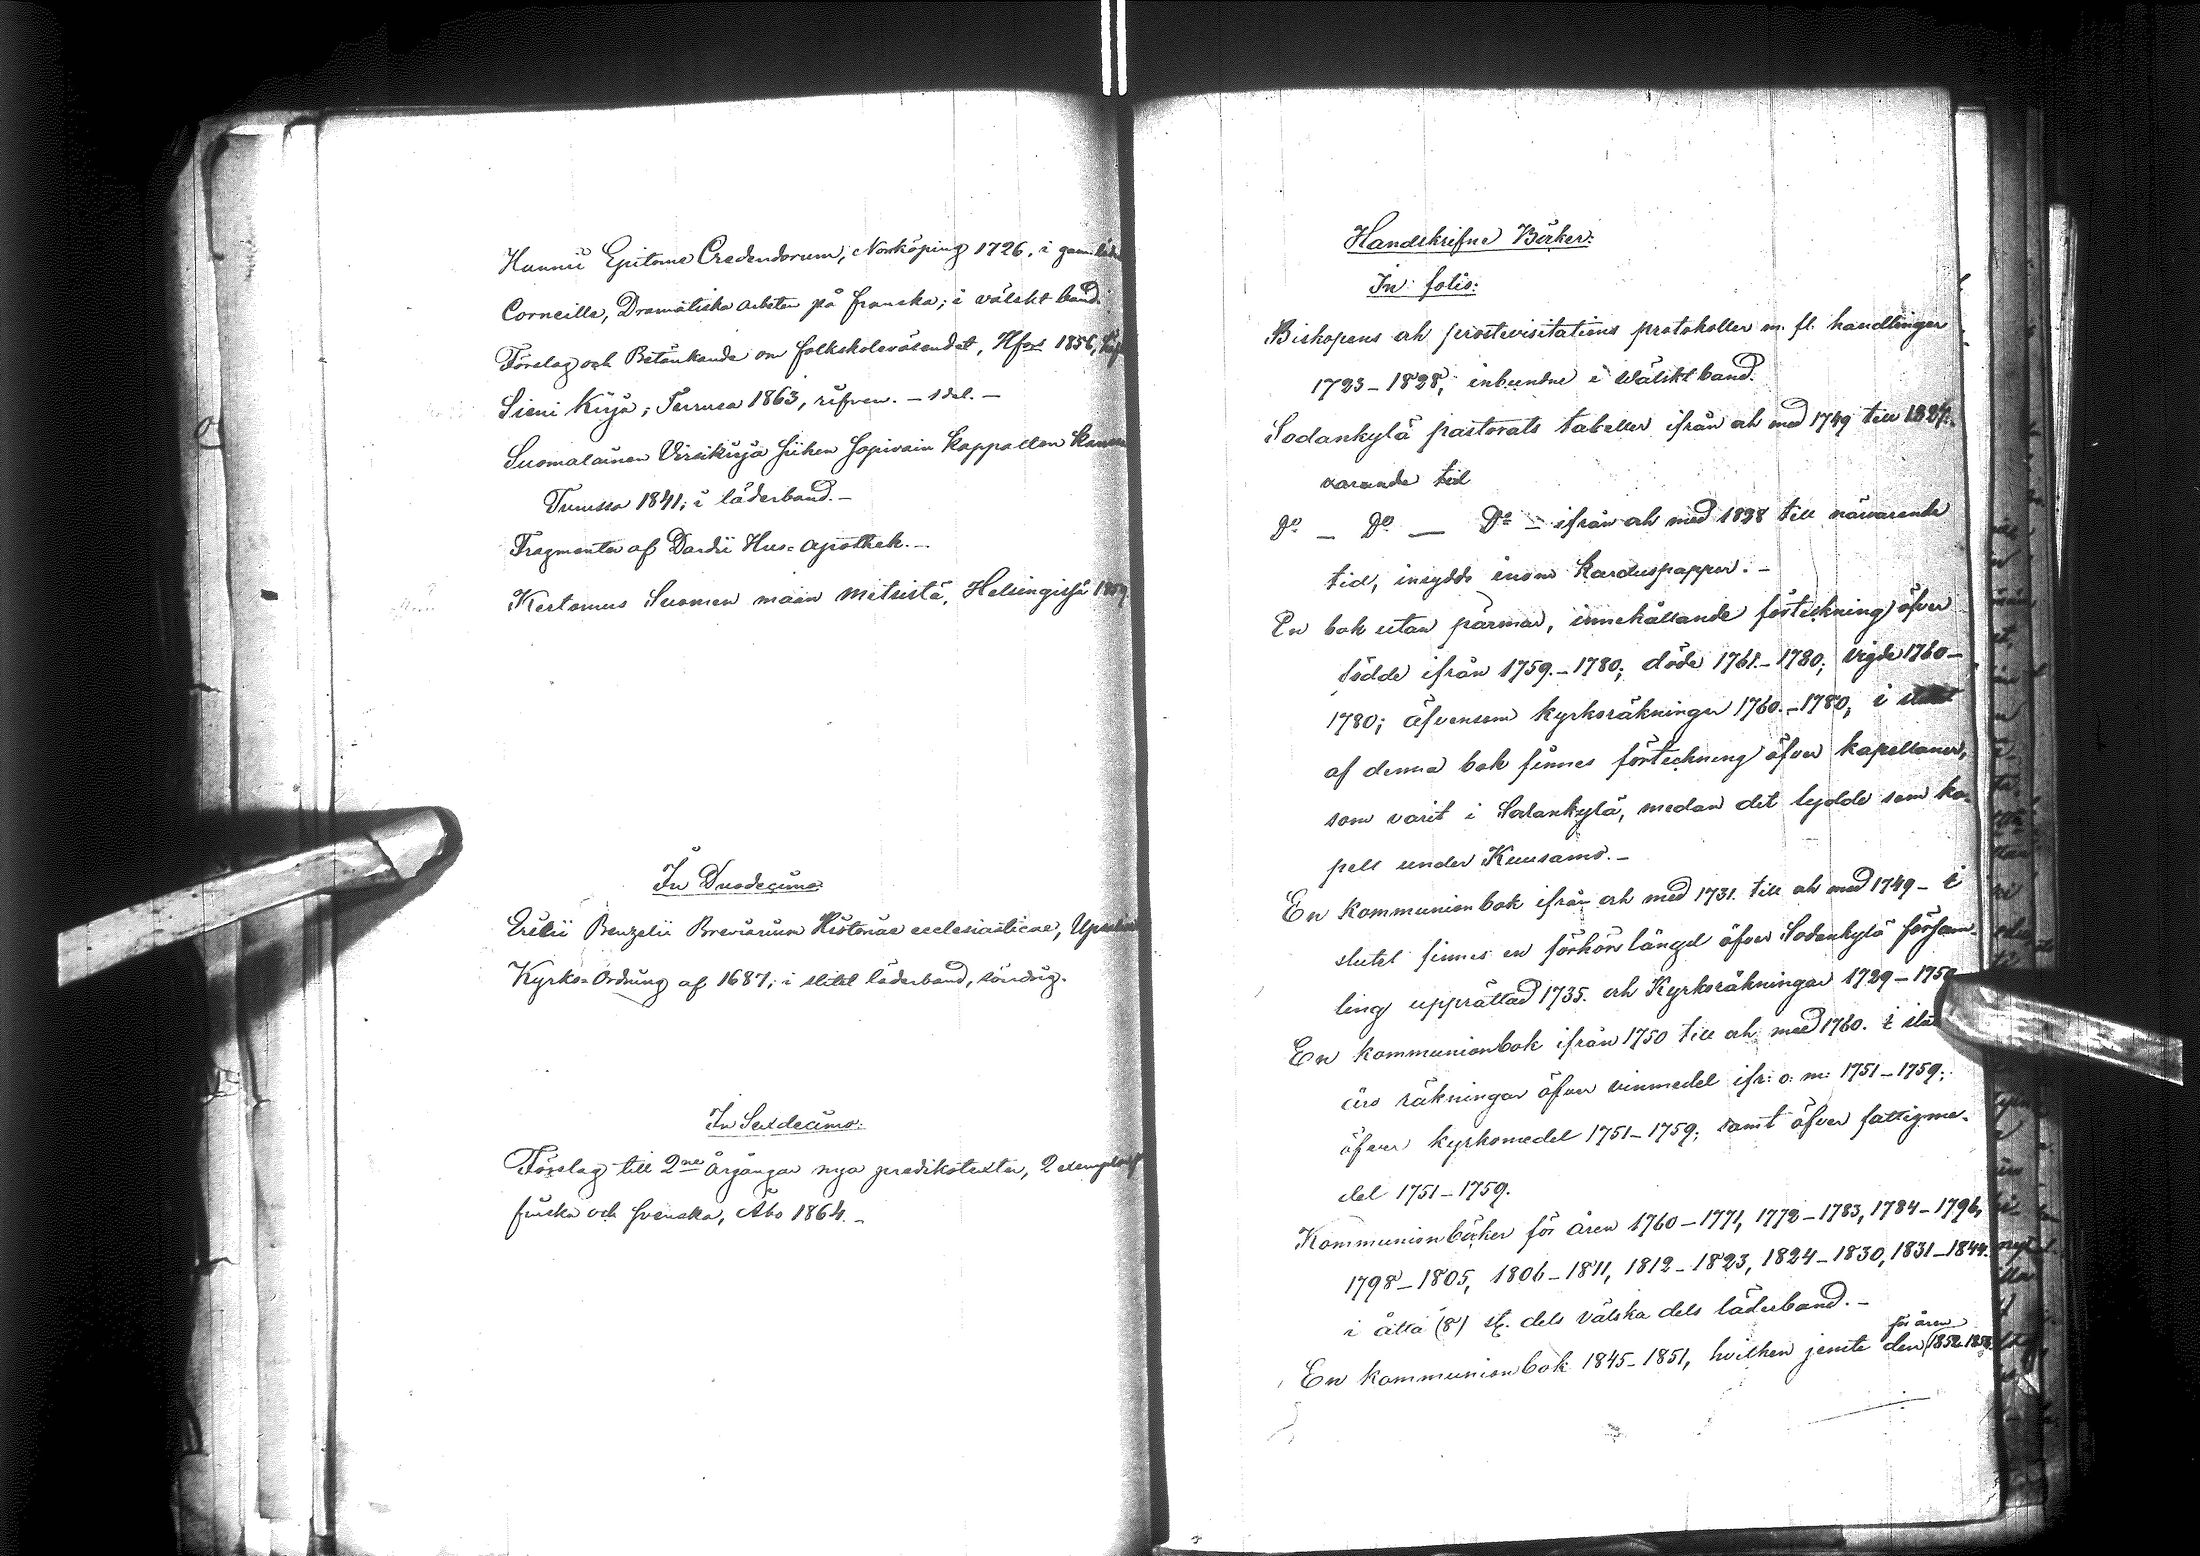 Hunnii Epitome Credendorum, Norköping 1726. i gam.
Corneille, Dramatiska arbeten på franska; i välskt band.
Förslag och Betänkande om folkskoleväsendet, Hfors 1856,
Sieni Kirja; Turussa 1863, rifven. – 1 del. –
Suomalainen Virsikirja siihen sopivain kappalden
Turussa 1841; i läderband. –
Fragmenter af Hus-apothek. –
Kertomus Suomen maan metsistä, Helsingissä
In Duodecimo
Erikii Benzelii Breviarium Historiae ecclesiasticae,
Kyrko-Ordning af 1687; i slitet läderband, söndrig.
In Sexdecimo:
Förslag till 2ne Årgångar nya predikotexter, 2
finska och svenska, Åbo 1864. –
Handskrifne Böcker:
In folio:
Biskopens och prostevisitations protokoller m. fl. handlingar
1723–1828, inbundne i Wälskt band.
Sodankylä pastorats tabeller ifrån och med 1749 till
varande tid
Do – Do – Do – ifrån och med 1828 till närvarande
tid, insydde inom karduspapper. –
En bok utan pärmar, innehållande förteckning öfver
födde ifrån 1759.–1780; döde 1761.–1780; vigde 1760–
1780; äfvensom kyrkoräkningar 1760.–1780, i slutet
af denna bok finnes förteckning öfver kapellaner,
som varit i Sodankylä, medan det lydde som ka-
pell under Kuusamo. –
En kommunionbok ifrån och med 1731. till och med 1749 – i
slutet finnes en förhörslängd öfver Sodankylä försam-
ling upprättad 1735. och Kyrkoräkningar 1729–1750
En kommunionbok ifrån 1750 till och med 1760. i
äro räkningar öfver vinmedel ifr: o: m: 1751–1759;
öfver kyrkomedel 1751–1759; samt öfver fattigme-
del 1751–1759.
Kommunionböcker för åren 1760–1771, 1772–1783, 1784–1796,
1798–1805, 1806–1811, 1812–1823, 1824–1830, 1831–1844.
i åtta (8) st. dels välska dels läderband. –
för åren
En kommunionbok 1845–1851, hvilken jemte den